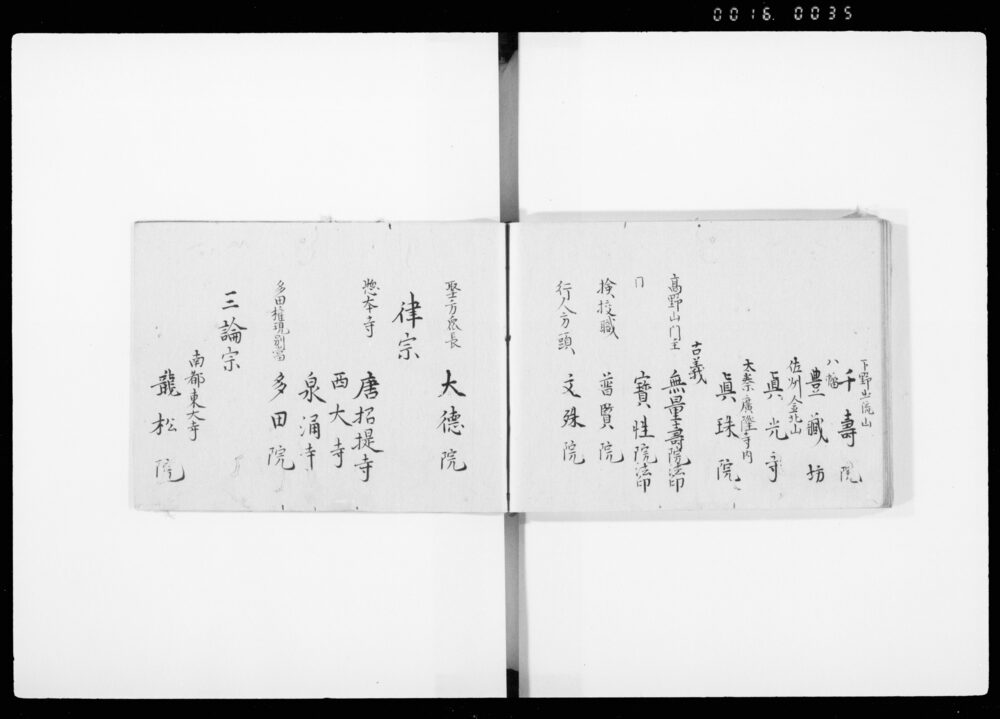 0016. 0035
下野出流山
千壽院
八幡
豊蔵坊
佐州金北山
眞光寺
太秦廣隆寺内
眞珠院
古義
高野山門主
無量壽院法印
寶性院法印
検校職
普賢院
行人方頭
文殊院
聖方衆長
大德院
律宗
惣本寺
唐招提寺
西大寺
泉涌寺
多田権現別當
多田院
三論宗
南都東大寺
龍松院